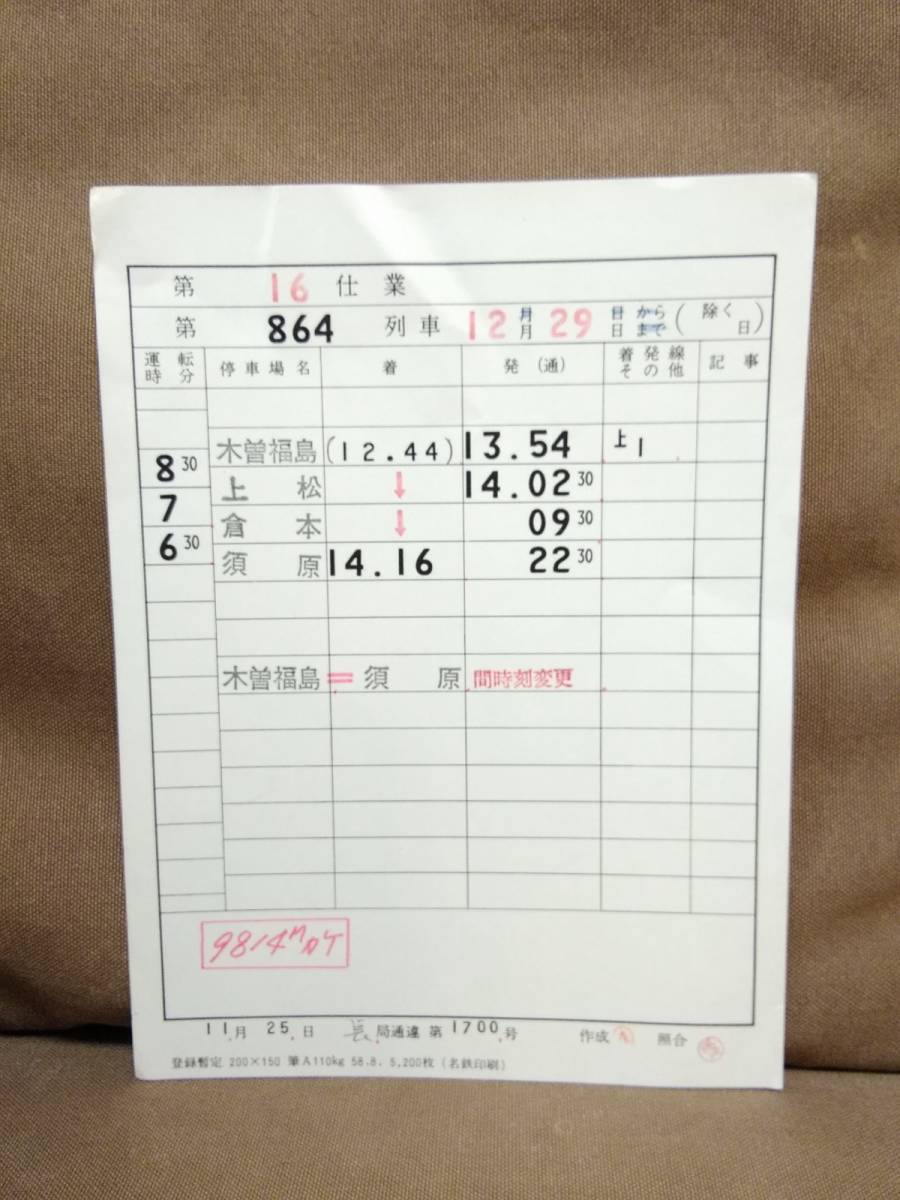 第 16 仕業
第 864 列車 12月月 29 日から日まで (除く 日)
運転時分 停車場名 着 発(通) 着発線その他 記事
木曽福島 (12.44) 13.54 上1
8 30
上松 ↓ 14.02 30
7
倉本 ↓ 09 30
6 30
須原 14.16 22 30
木曽福島 = 須原 間時刻変更
9814
11月 25.日 長 局通達 第 1700号 作成 照合
登録暫定 200×150 筆A110kg 58.8. 5,200枚 (名鉄印刷)